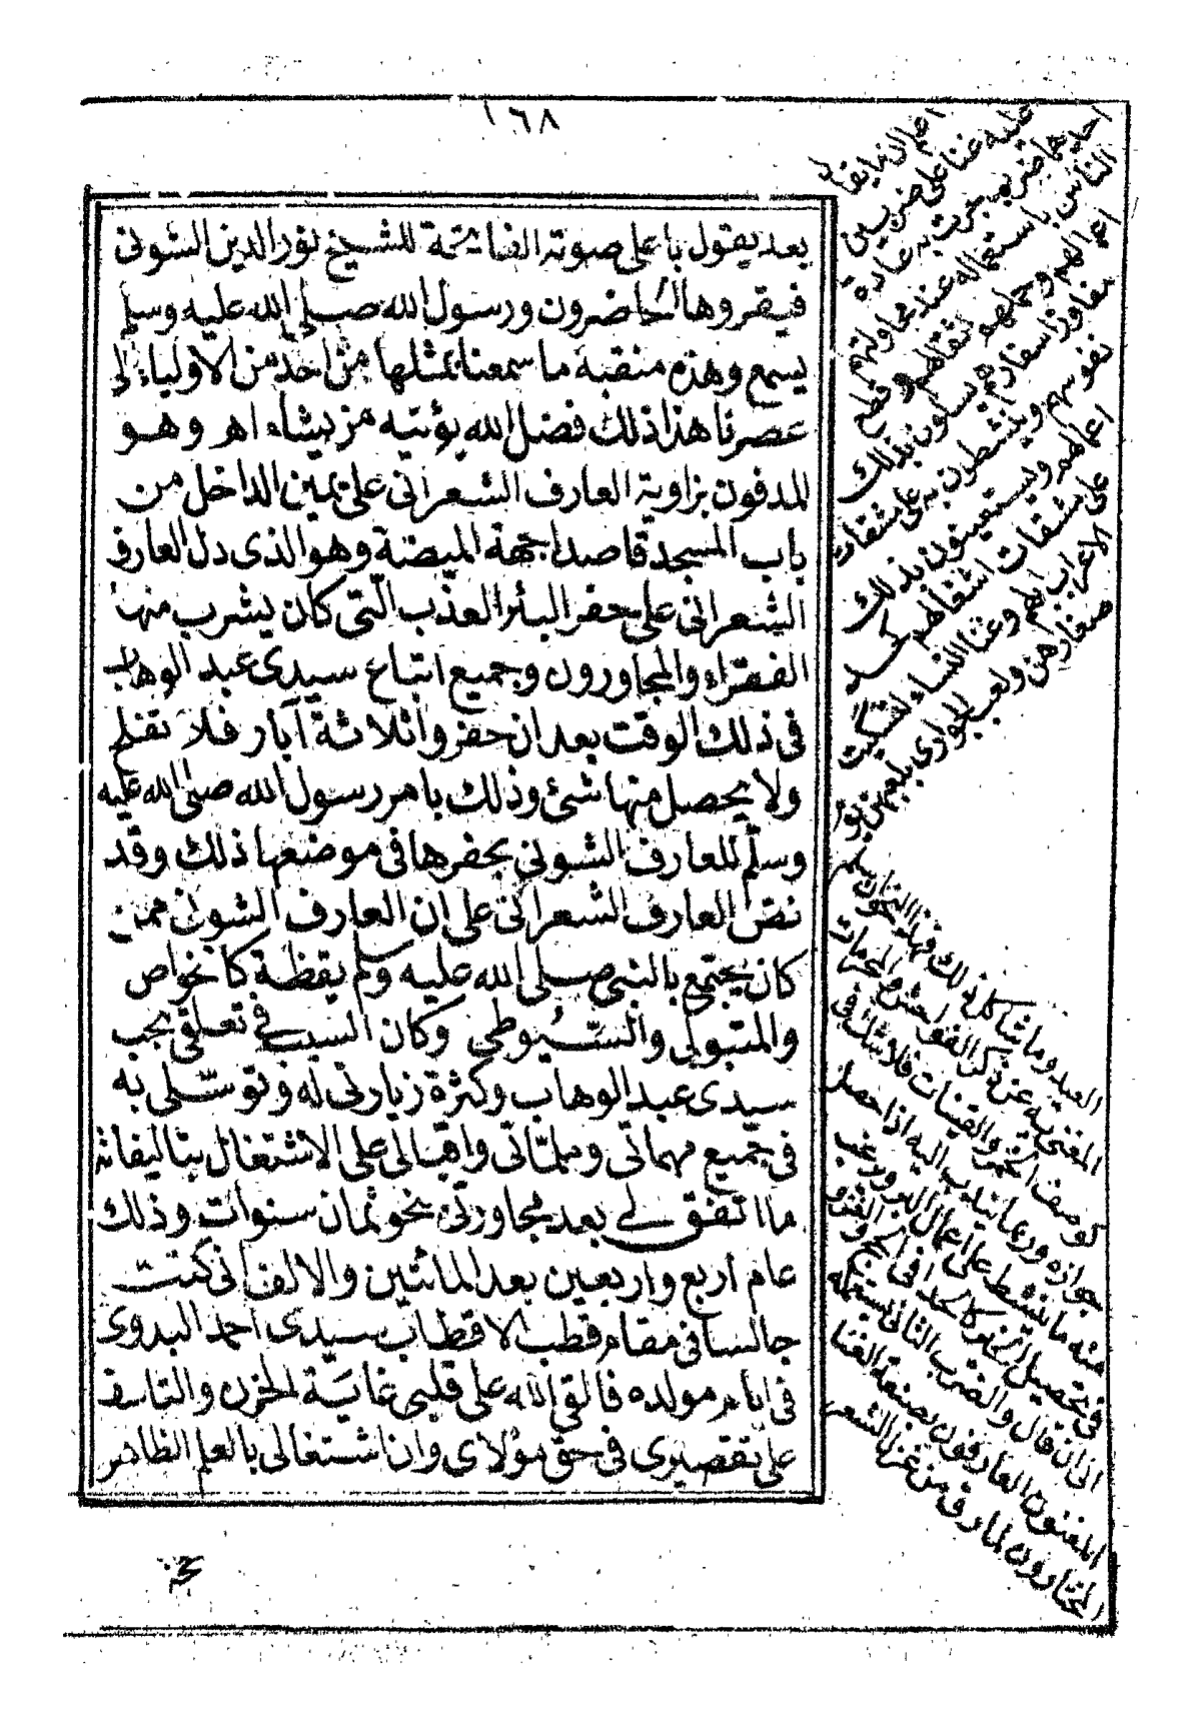 ١٦٨
بعد يقول باعلى صوته الفاتحة للشيخ نور الدين الشونى
فيقروها الحاضرون ورسول الله صلى الله عليه وسلم
يسمع وهذه منقبة ما سمعنا بمثلها من احد من الاولياء الى
عصرنا هذا ذلك فضل الله يؤتيه من يشاء اهـ وهو
المدفون بزاوية العارف الشعرانى على يمين الداخل من
باب المسجد قاصدا جهة الميضئة وهو الذى دل العارف
الشعرانى على حفر البئر العذب التى كان يشرب منها
الفقراء والمجاورون وجميع اتباع سيدى عبد الوهاب
فى ذلك الوقت بعد ان حفروا ثلاثة آبار فلا تفلح
ولا يحصل منها شئ وذلك بامر رسول الله صلى الله عليه
وسلم للعارف الشونى بحفرها فى موضعها ذلك وقد
نص العارف الشعرانى على ان العارف الشونى ممن
كان يجتمع بالنبى صلى الله عليه وسلم يقظة كالخواص
والمتبولى والسيوطى وكان السبب فى تعلقى بحب
سيدى عبد الوهاب وكثرة زيارتى له وتوسلى به
فى جميع مهماتى وملماتى واقبالى على الاشتغال بتاليفاته
ما اتفق لى بعد مجاورتى بنحو ثمان سنوات وذلك
عام اربع واربعين بعد المائتين والالف انى كنت
جالسا فى مقام قطب الاقطاب سيدى احمد البدوى
فى ايام مولده فالقى الله على قلبى غاية الحزن والتاسف
على تقصيرى فى حق مولاى وان اشتغالى بالعلم الظاهر
اعلم ان ما يقال
عليه غنا على ضربين
احدهما ضرب جرت به عادة
الناس باستعماله عند محاولتهم
اعمالهم وحملهم اثقالهم وقطع
مفاوز اسفارهم يسلون بذلك
نفوسهم وينشطون به على مشقات
اعمالهم ويستعينون بذلك
على مشقات اشغالهم كحد
الاعراب بابلهم وغنا النساء لتسكيت
صغارهن ولعب الجوارى بلعبهن
العيد وما شاكل ذلك فهذا اذا سلم
المغنى به عن ذكر الفواحش والمحرمات
كوصف الخمر والقينات فلا شك فى
جوازه وربما يندب اليه اذا حصل
منه ما ينشط على اعمال البر ويرغب
فى تحصيل الخير كالحدا فى الحج والغزو
الى ان قال والضرب الثانى يستعمله
المغنون العارفون بصنعة الغنا
المختارون لما رق من غزل الشعر